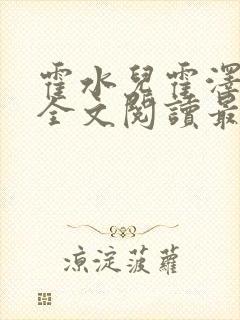 霍水兒霍澤
全文閱讀最
涼淀菠蘿